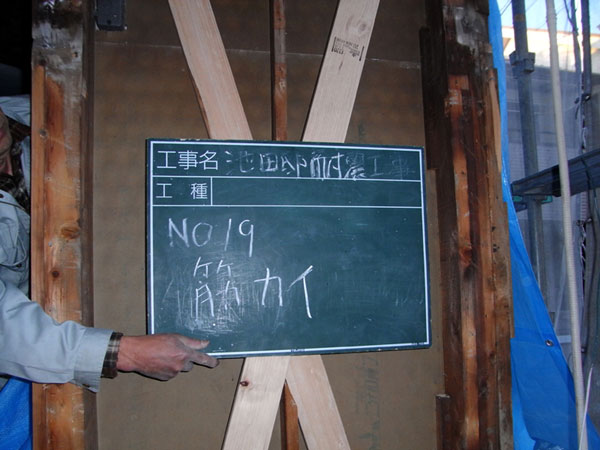 工事名 池田邸耐震工事
工種
NO19
筋カイ